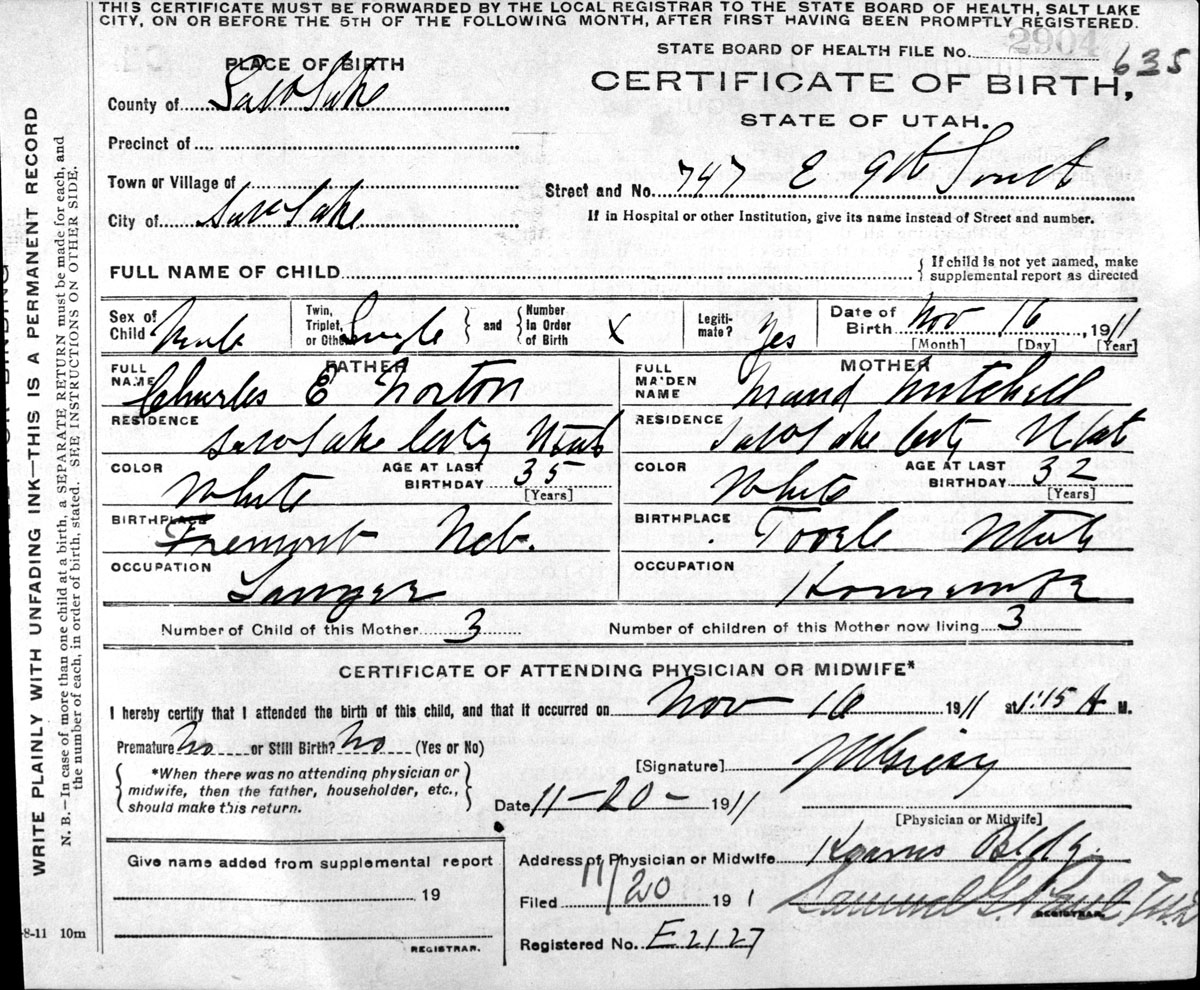 THIS CERTIFICATE MUST BE FORWARDED BY THE LOCAL REGISTRAR TO THE STATE BOARD OF HEALTH, SALT LAKE
CITY, ON OR BEFORE THE 5TH OF THE FOLLOWING MONTH, AFTER FIRST HAVING BEEN PROMPTLY REGISTERED.
STATE BOARD OF HEALTH FILE No. 2904 635
PLACE OF BIRTH
CERTIFICATE OF BIRTH,
STATE OF UTAH.
County of Salt Lake
Precinct of
Town or Village of
Street and No. 747 E 9th South
City of Salt Lake
If in Hospital or other Institution, give its name instead of Street and number.
FULL NAME OF CHILD { If child is not yet named, make
supplemental report as directed
Sex of Child Male
Twin, Triplet, or Other Single } and { Number In Order of Birth X
Legiti-mate? Yes
Date of Birth Nov 16, 1911
[Month] [Day] [Year]
FATHER
FULL NAME Charles E Norton
RESIDENCE Salt Lake City Utah
COLOR White AGE AT LAST BIRTHDAY 35
[Years]
BIRTHPLACE Fremont Neb.
OCCUPATION Lawyer
MOTHER
FULL MAIDEN NAME Maud Mitchell
RESIDENCE Salt Lake City Utah
COLOR White AGE AT LAST BIRTHDAY 32
[Years]
BIRTHPLACE Tooele Utah
OCCUPATION Housewife
Number of Child of this Mother 3 Number of children of this Mother now living 3
CERTIFICATE OF ATTENDING PHYSICIAN OR MIDWIFE*
I hereby certify that I attended the birth of this child, and that it occurred on Nov 16 1911 at 1:15 A M.
Premature No or Still Birth? No (Yes or No)
{ *When there was no attending physician or
midwife, then the father, householder, etc.,
should make this return. }
[Signature]
Date 11-20- 1911
[Physician or Midwife]
Give name added from supplemental report
19
REGISTRAR.
Address of Physician or Midwife Kearns Bldg.
Filed 11/20 191 1
Samuel G. Paul
REGISTRAR.
Registered No. E2127
-8-11 10m
WRITE PLAINLY WITH UNFADING INK—THIS IS A PERMANENT RECORD
N. B.—In case of more than one child at a birth, a SEPARATE RETURN must be made for each, and
the number of each, in order of birth, stated. SEE INSTRUCTIONS ON OTHER SIDE.
BINDING